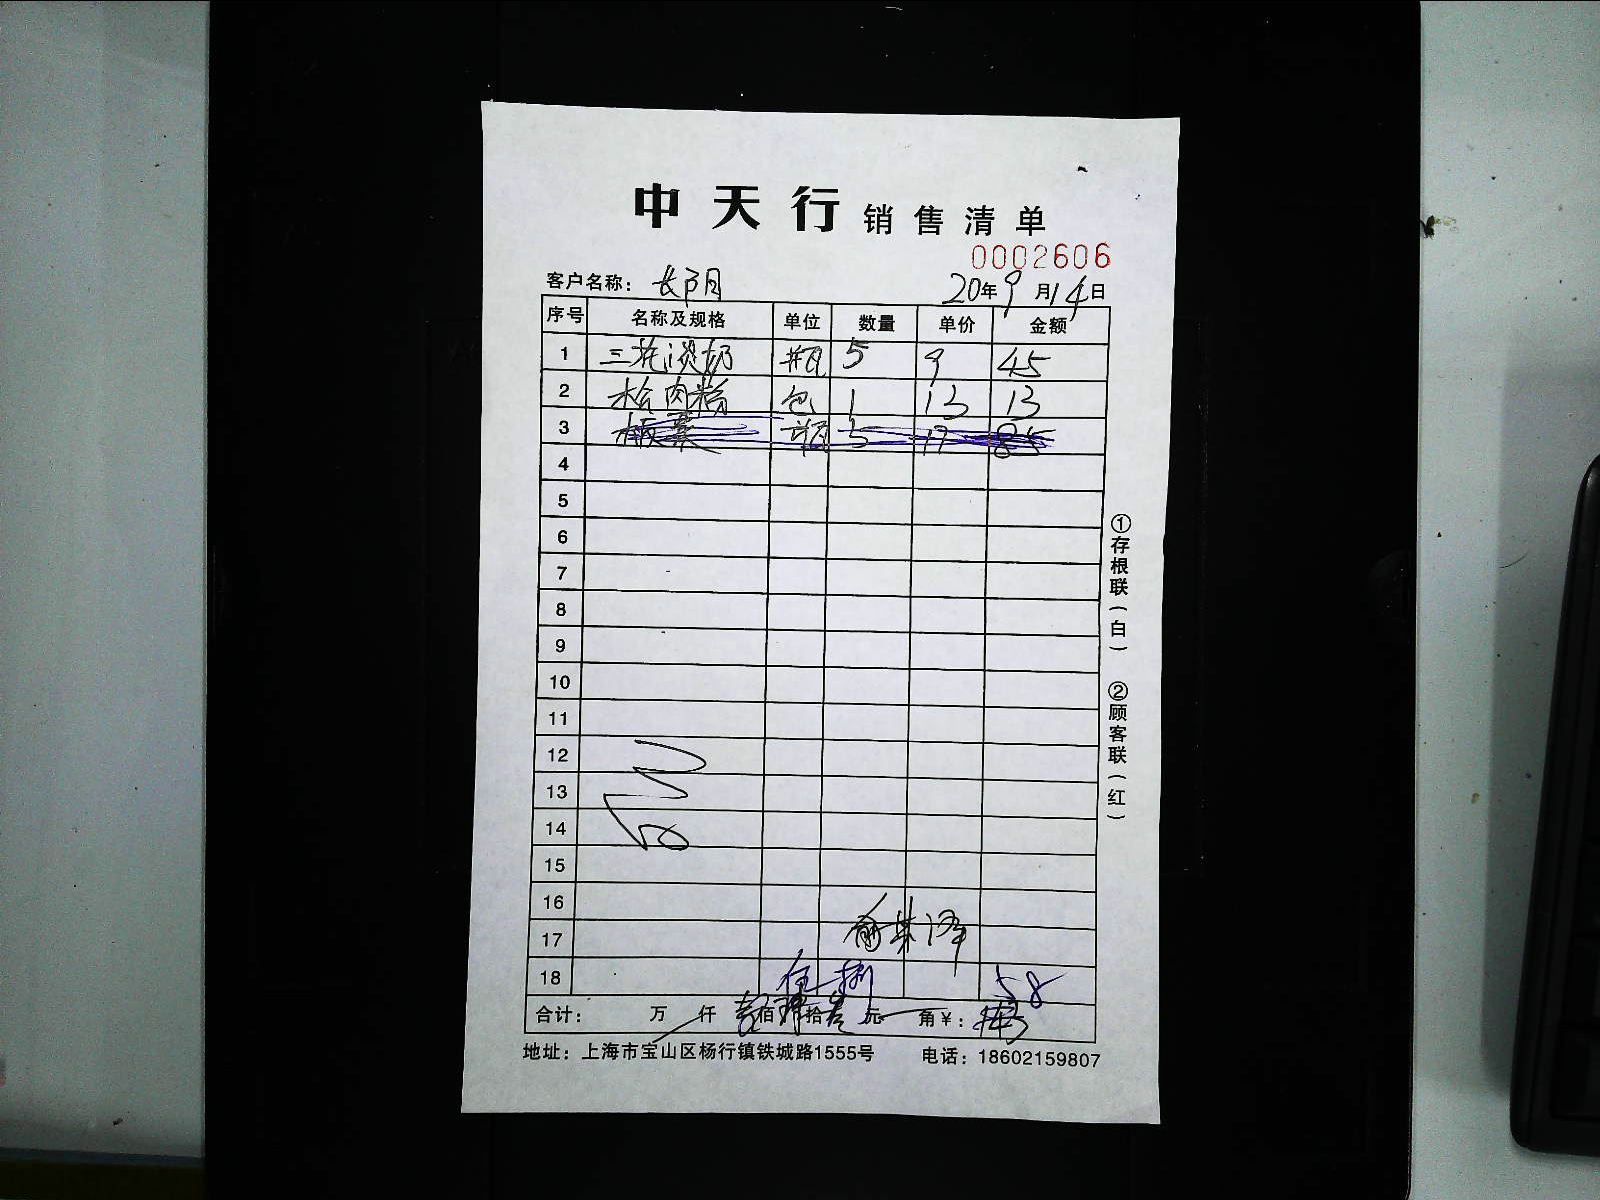 中天行销售清单
0002606
客户名称：长阳 20年9月14日
序号 名称及规格 单位 数量 单价 金额
1 三花淡奶 瓶 5 9 45
2 松肉粉 包 1 13 13
3 瓶 5 17 85
4
5
6
7
8
9
10
11
12
13
14
15
16
17
18 伍 捌 58
合计： 万 仟 佰 拾 元 角 ¥：
地址：上海市宝山区杨行镇铁城路1555号 电话：18602159807
①存根联（白） ②顾客联（红）